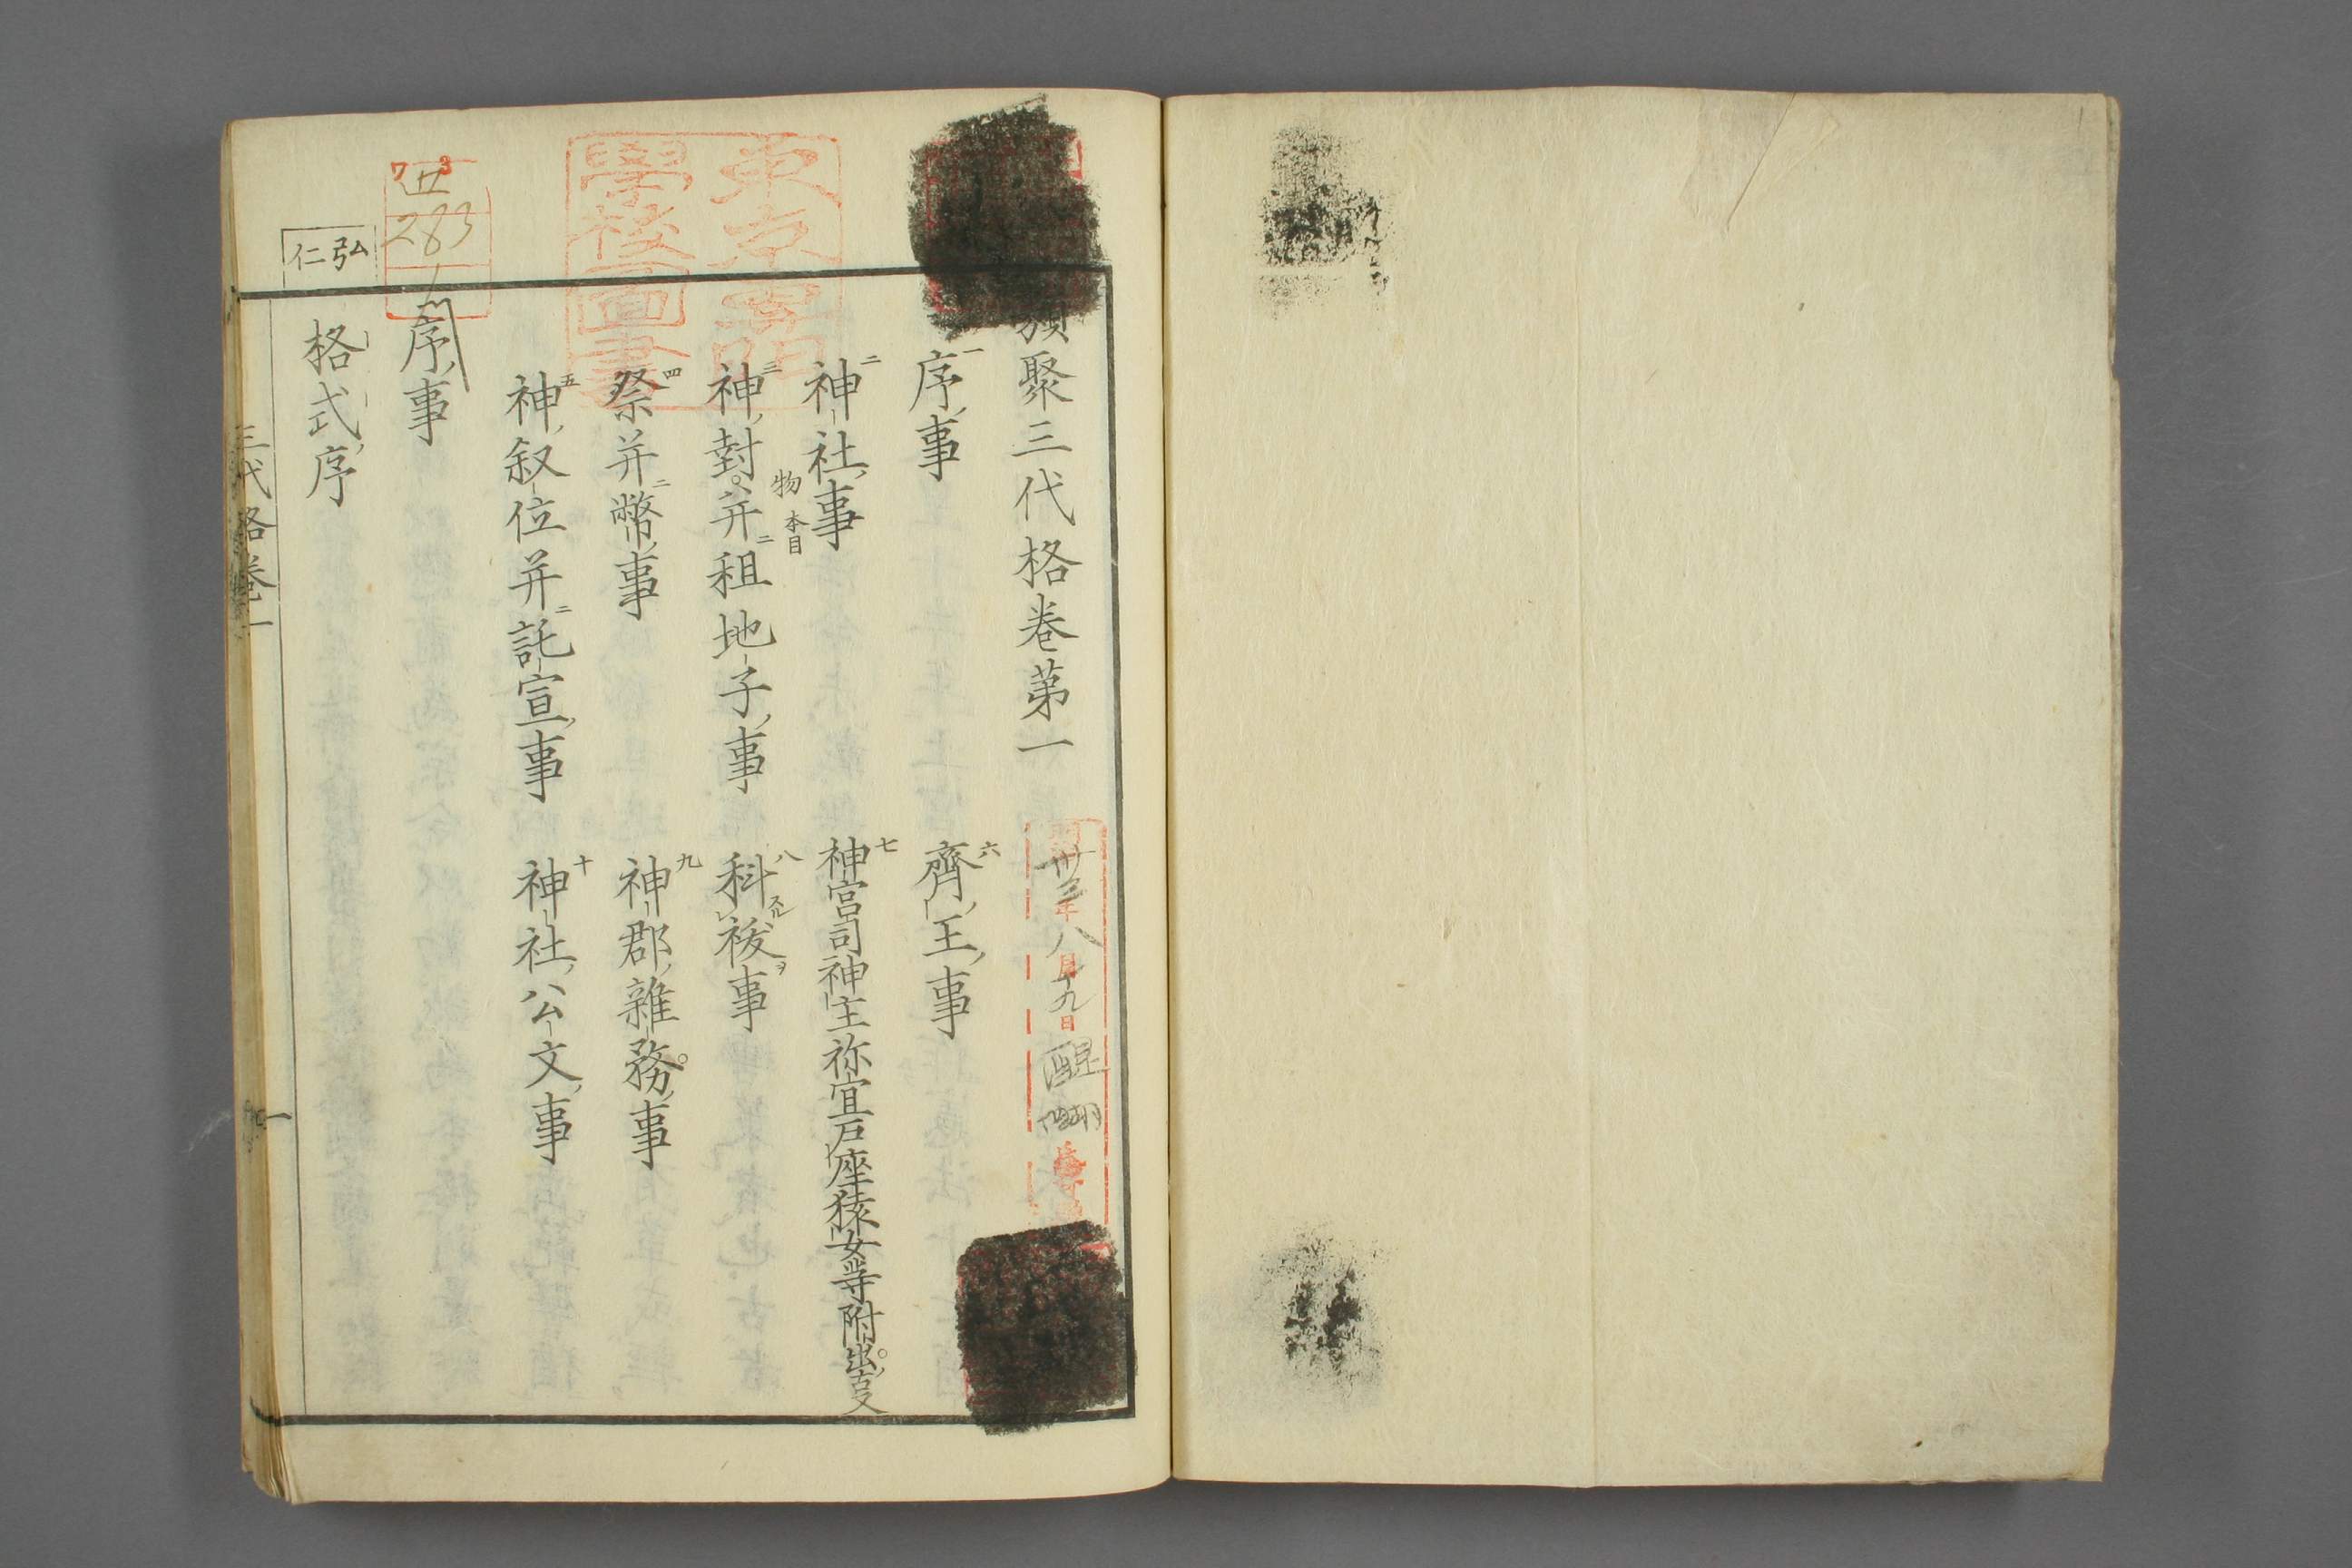 類聚三代格卷第一
一序事
二神社事
三神封并租地子事
物本目
四祭并幣事
五神叙位并託宣事
六齊王事
七神宮司神主祢宜戸座猿女等附出事
八科祓事
九神郡雜務事
十神社公文事
序事
格式序
弘仁
三代格卷一
一
東京專門學校圖書
283
卅三年八月十九日